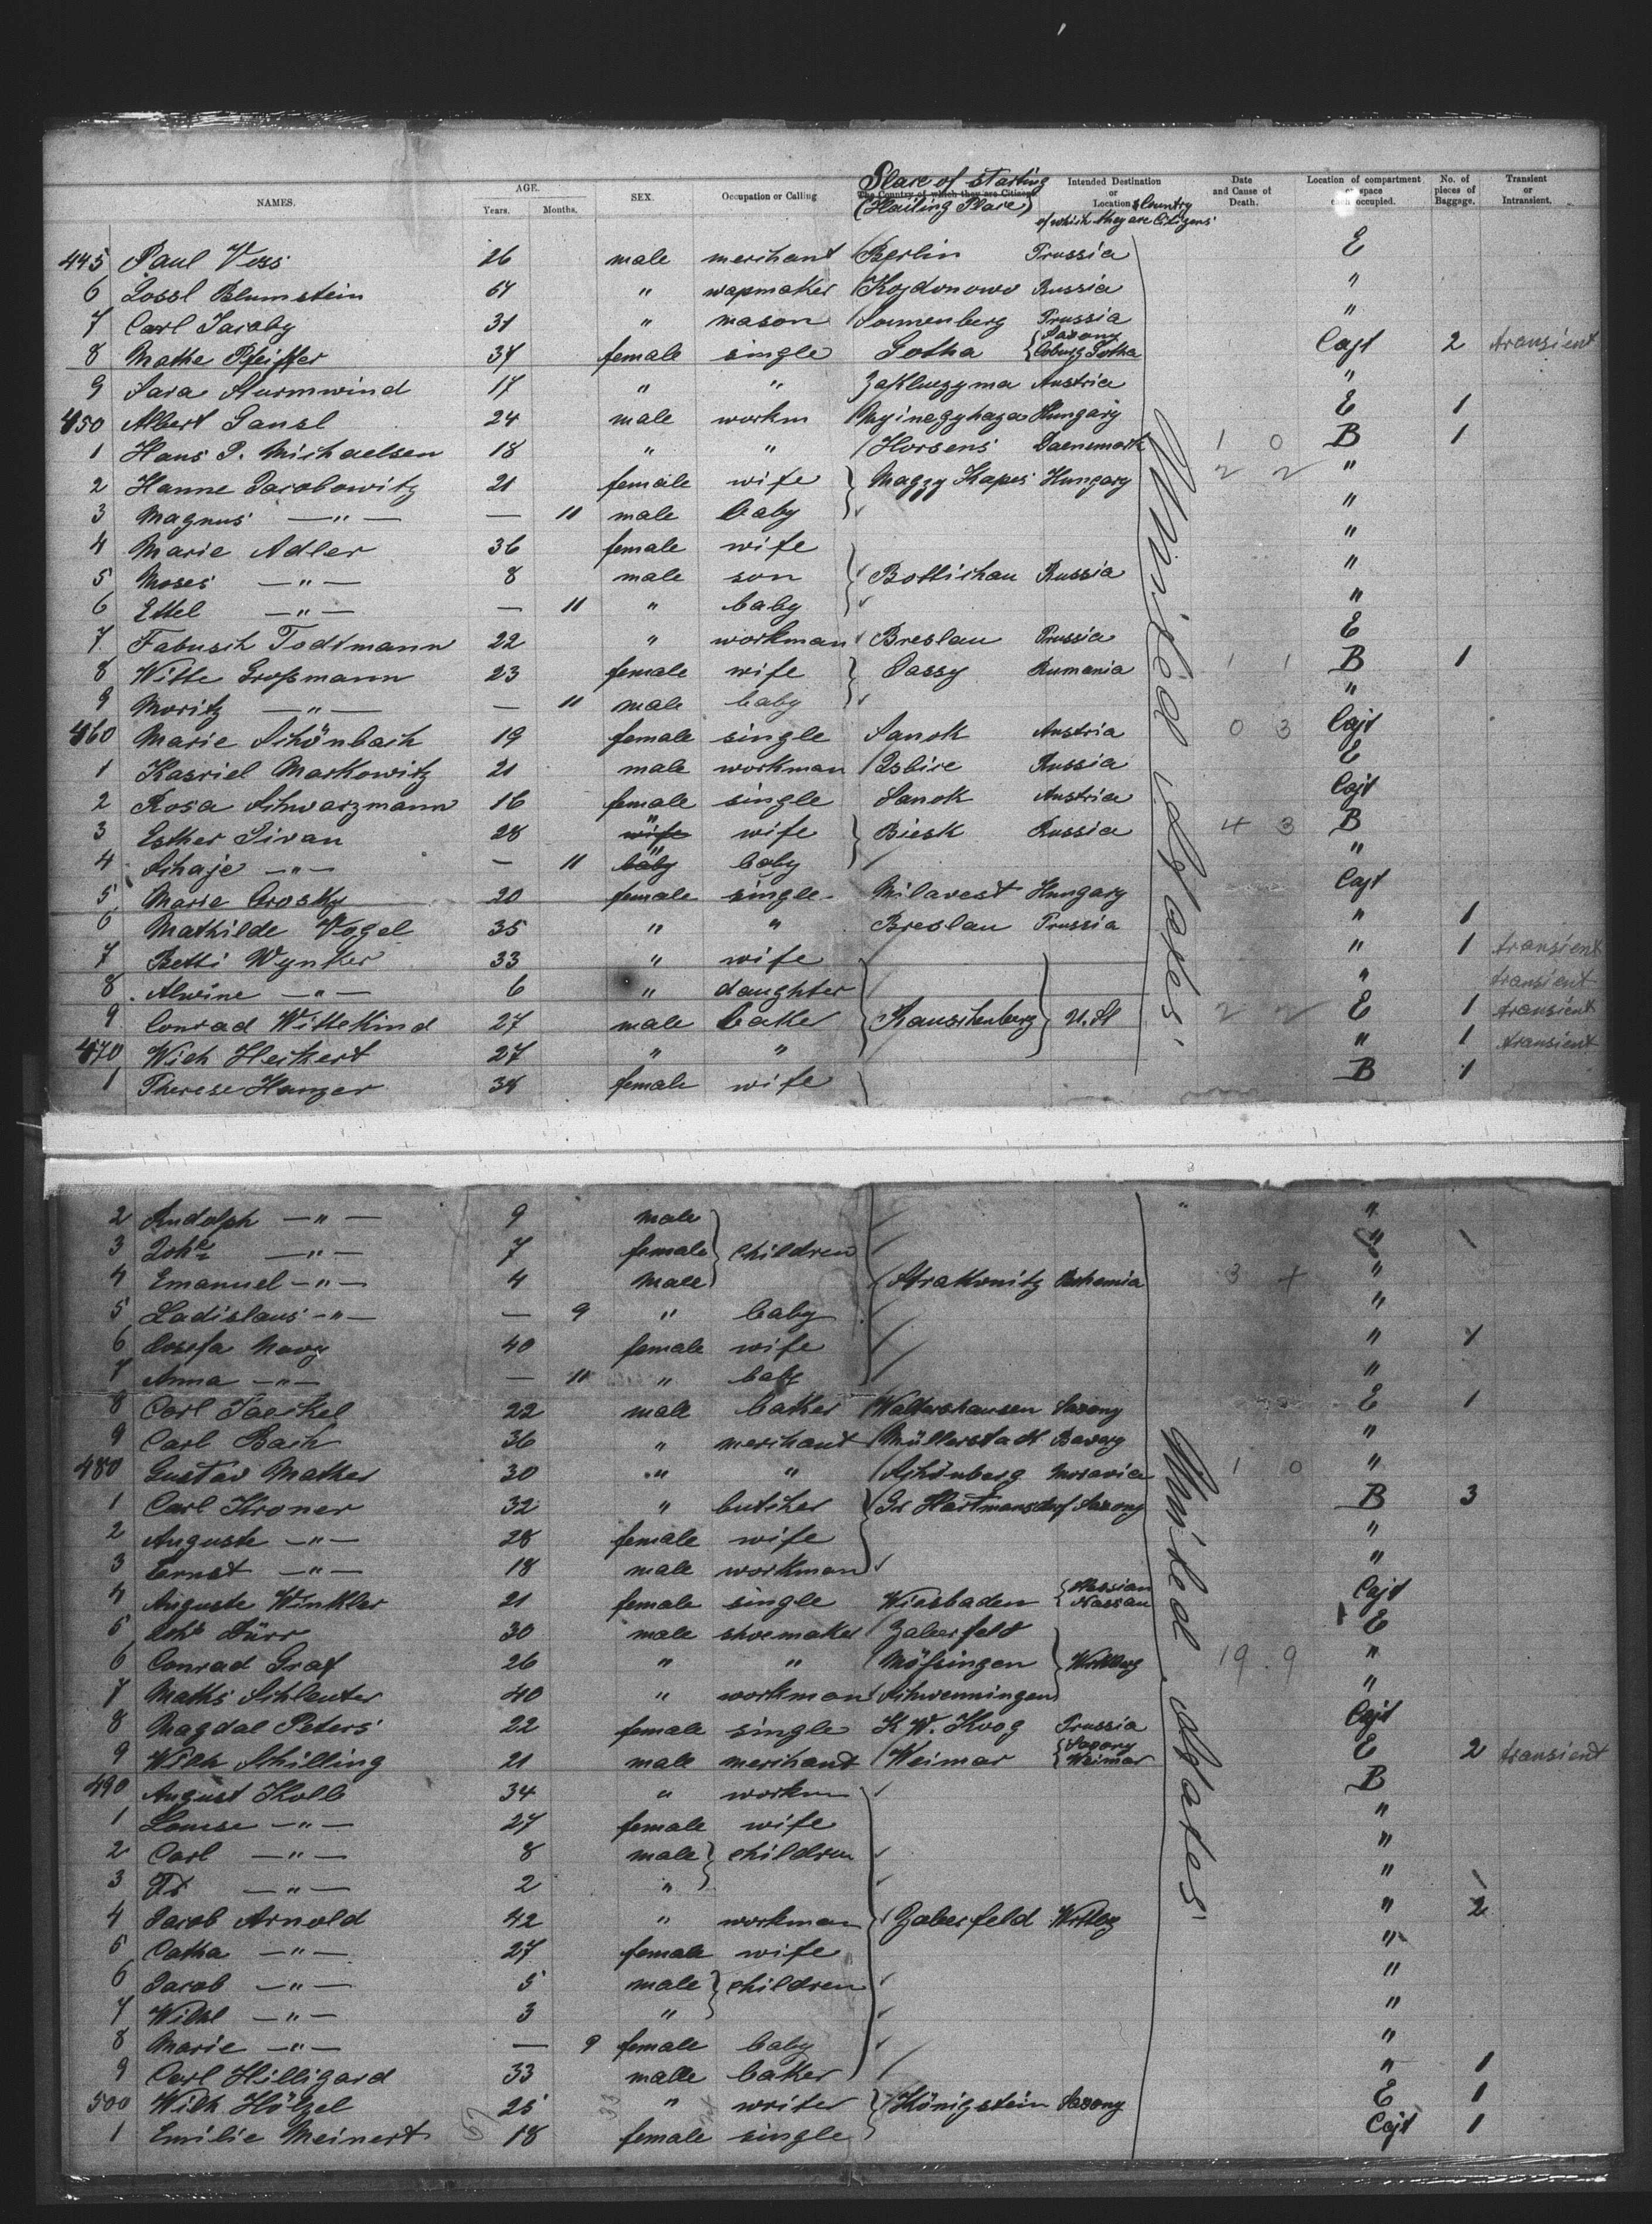 NAMES. AGE. Years. Months. SEX. Occupation or Calling The Country of which they are Citizens Place of starting (Hailing Place) Intended Destination or Location & Country of which they are Citizens Date and Cause of Death. Location of compartment or space each occupied. No. of pieces of Baggage. Transient or Intransient.
445 Paul Voss 26 male merchant Berlin Prussia E
6 Blumstein 64 " Kojdonowo Russia "
7 Carl Jacoby 31 " mason Sonnenberg Prussia "
8 Mathe Pfeiffer 34 female single Gotha Saxony Coburg Gotha Cajt 2 transient
9 Sara Sturmwind 17 " " Austria "
450 Albert Gansl 24 male workm Hungary E 1
1 Hans P. Michaelsen 18 " " Horsens Daenemark 1 0 B 1
2 Hanne Jacobowitz 21 female wife Hungary 2 2 "
3 Magnus —"— — 11 male baby "
4 Marie Adler 36 female wife "
5 Moses —"— 8 male son Bottischau Russia "
6 Ettel —"— — 11 " baby "
7 Fabusch Todtmann 22 " workman Breslau Prussia E
8 Witte Großmann 23 female wife Jassy Rumania 1 1 B 1
9 Moritz —"— — 11 male baby "
460 Marie Schönbach 19 female single Sanok Austria 0 3 Cajt
1 Kasriel Markowitz 21 male workman Russia E
2 Rosa Schwarzmann 16 female single Sanok Austria Cajt
3 Esther Sivan 28 wife " wife Biesk Russia 4 3 B
4 Schaje —"— — 11 baby " baby "
5 Marie 20 female single Milavest Hungary Cajt
6 Mathilde Vogel 35 " " Breslau Prussia " 1
7 Betti Wynker 33 " wife " 1 transient
8 Alwine —"— 6 " daughter " transient
9 Conrad Wittekind 27 male baker Rauschenberg U. St 2 2 E 1 transient
470 Wilh Heikert 27 " " " 1 transient
1 Therese Hanzer 38 female wife B 1
United States
2 Rudolph —"— 9 male "
3 —"— 7 female children "
4 Emanuel —"— 4 male Strakonitz Bohemia 3 4 "
5 Ladislaus —"— — 9 " baby "
6 Josefa Novy 40 female wife " 1
7 Anna —"— — 11 " baby "
8 Carl Jaeckel 22 male baker Waltershausen Saxony E 1
9 Carl Bach 36 " merchant Müllerstadt "
480 Gustav Mather 30 " " Schönberg Moravia 1 0 "
1 Carl Kroner 32 " butcher Gr Hartmansdorf Saxony B 3
2 Auguste —"— 28 female wife "
3 Ernst —"— 18 male workman "
4 Auguste Winkler 21 female single Wiesbaden Hessian Nassau Cajt
5 Dürr 30 male shoemaker Zaberfeld E
6 Conrad Graf 26 " " Mößingen Wrttbg 19 9 "
7 Maths Schlenter 40 " workman Schwenningen "
8 Magdal Peters 22 female single K W. Koog Prussia Cajt
9 Wilh Schilling 21 male merchant Weimar Saxony Weimar E 2 transient
490 August Kolb 34 " workm B
1 Louise —"— 27 female wife "
2 Carl —"— 8 male children "
3 Fr —"— 2 " "
4 Jacob Arnold 42 " workman Zaberfeld Wrttbg " 2
5 Catha —"— 27 female wife "
6 Jacob —"— 5 male children "
7 Wilhl —"— 3 " "
8 Marie —"— — 9 female baby "
9 Carl Hilligard 33 male baker " 1
500 Wilh Hölzel 25 " writer Königstein Saxony E 1
1 Emilie Meinert 18 female single Cajt 1
United States